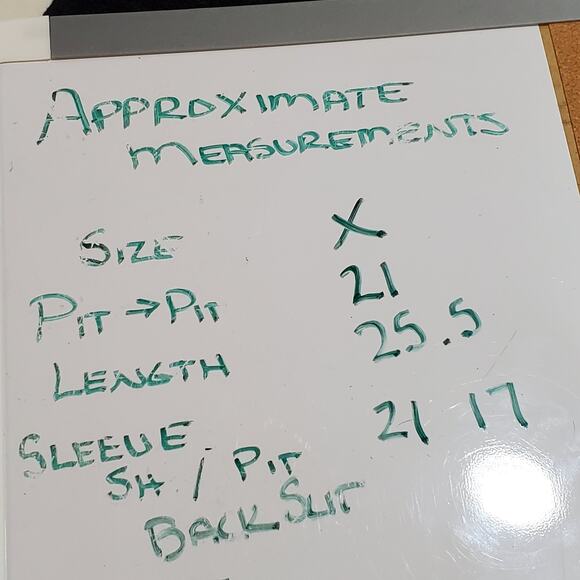 APPROXIMATE
MEASUREMENTS
SIZE X
PIT → PIT 21
LENGTH 25.5
SLEEVE 21 17
SH / PIT
BACK SLIT